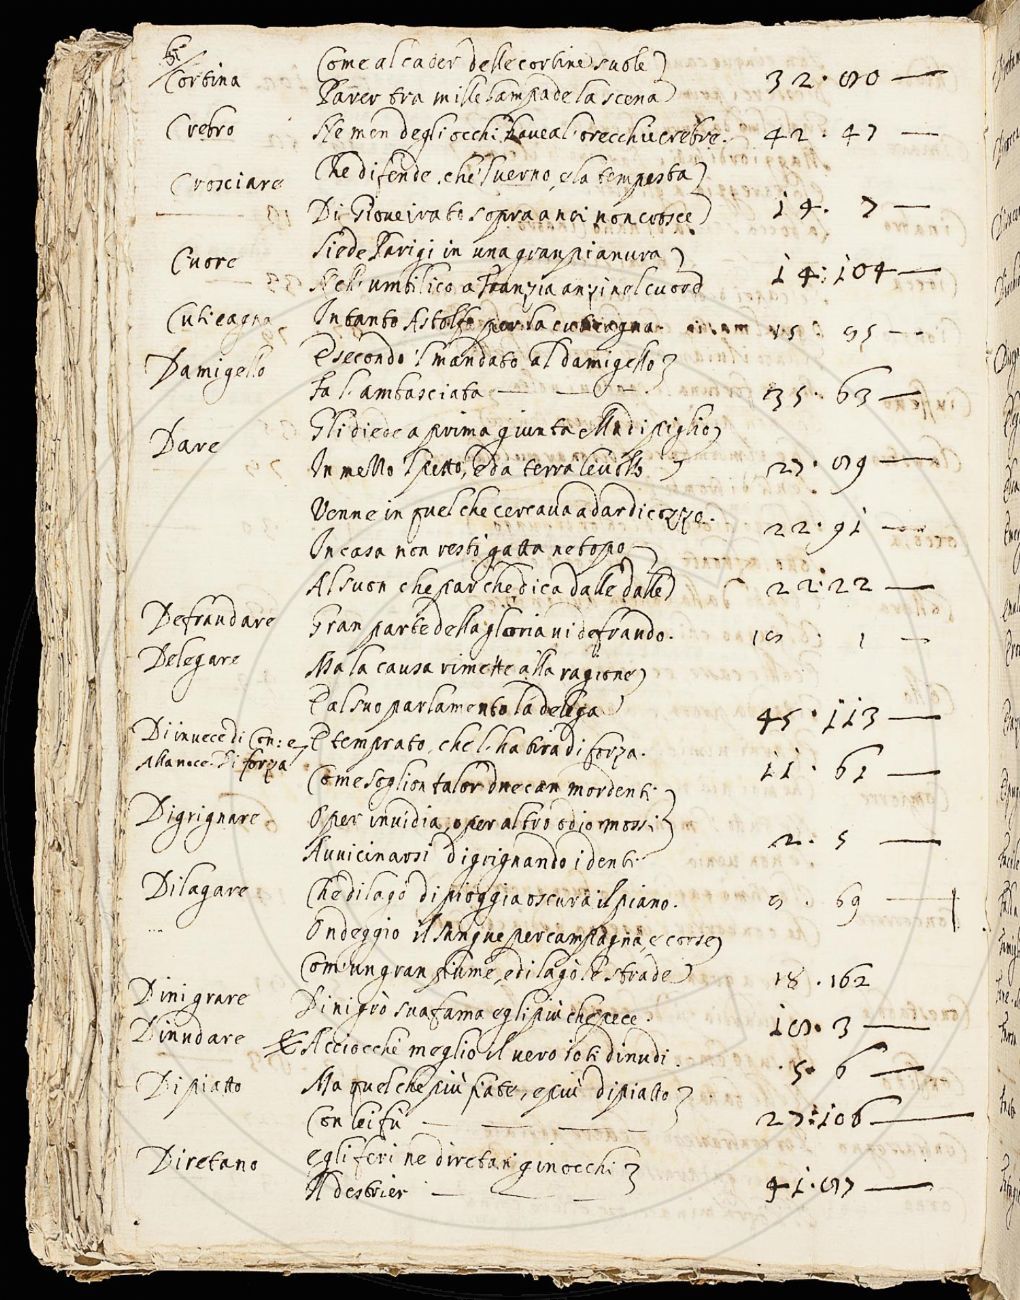 Cortina Come al cader delle cortine suole
Parer tra mille lampade la scena 32 · 80
Crebro Ne men degli occhi havea l'orecchie crebre. 42 · 47
Crosciare Che difende, che 'l verno, e la tempesta
Di Giove irato sopra a noi non crosce 14 · 7
Cuore Siede Parigi in una gran pianura
Nell'umbilico a Franzia anzi nel cuore 14 : 104
Cuticagna Intanto Astolfo per la cuticagna 15 85
Damigello E secondo 'l mandato al damigello
Fa l'ambasciata 35 · 63
Dare Gli diede a prima giunta di piglio
In mezzo 'l petto, e da terra levollo 27 · 89
Venne in quel che cercava a dar di cozzo. 22 · 91
In casa non restò gatta ne topo
Al suon che par che dica dalle dalle 22 : 22
Defraudare Gran parte della gloria vi defraudo. 18 : 1
Delegare Ma la causa rimette alla ragione
E al suo parlamento la delega 45 · 113
Di invece di Con: e E temprato, che l'habbia di forza. 11 · 61
Alla voce. Di forza
Come soglion talor due can mordenti
Digrignare O per invidia, o per altro odio mossi
Avvicinarsi digrignando i denti 2 · 5
Dilagare Che dilagò di pioggia oscura il piano. 8 · 69
Ondeggiò il sangue per campagna, e corse
Com'un gran fiume, e dilagò le strade 18 · 162
Dinigrare Dinigrò sua fama egli più che pece. 18 · 3
Dinudare Acciocchè meglio il vero io ti dinudi. 5 · 6
Dipiatto Ma quel che più fiate, e più di piatto
Con lei fù 27 : 106
Diretano egli ferì ne diretan ginocchi
Il destrier 41 · 87